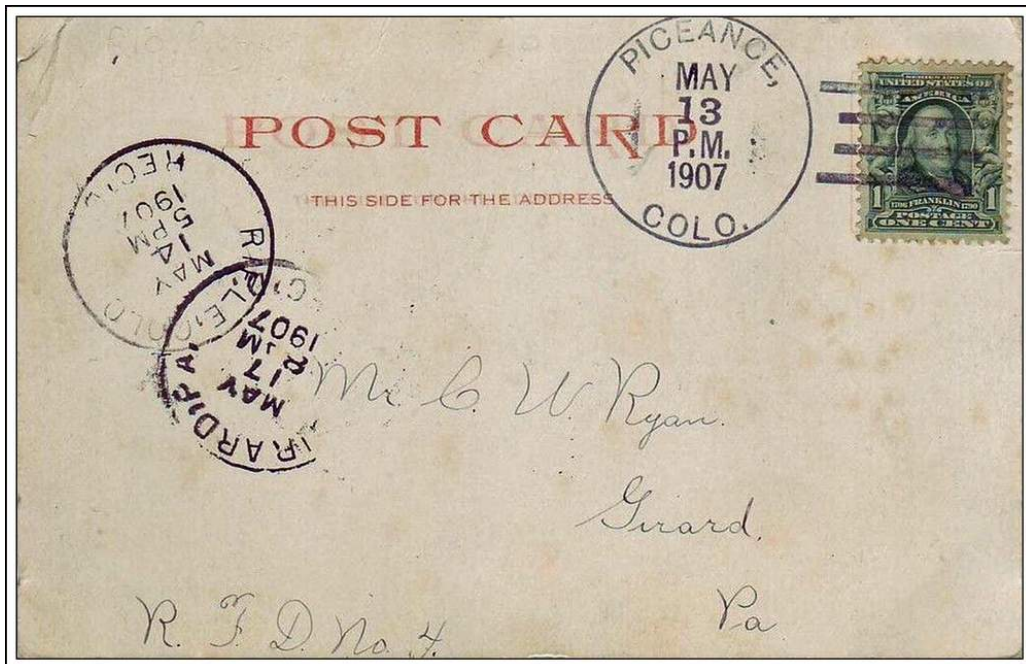 POST CARD
THIS SIDE FOR THE ADDRESS
PICEANCE,
MAY
13
P.M.
1907
COLO.
UNITED STATES OF
AMERICA
1706 FRANKLIN 1790
1 POSTAGE 1
ONE CENT
RIFLE, COLO
MAY
14
5 PM
1907
REC'D
RARD, PA.
MAY
17
1907
Mr C. W. Ryan.
Girard.
Pa
R. F. D. No. 4.